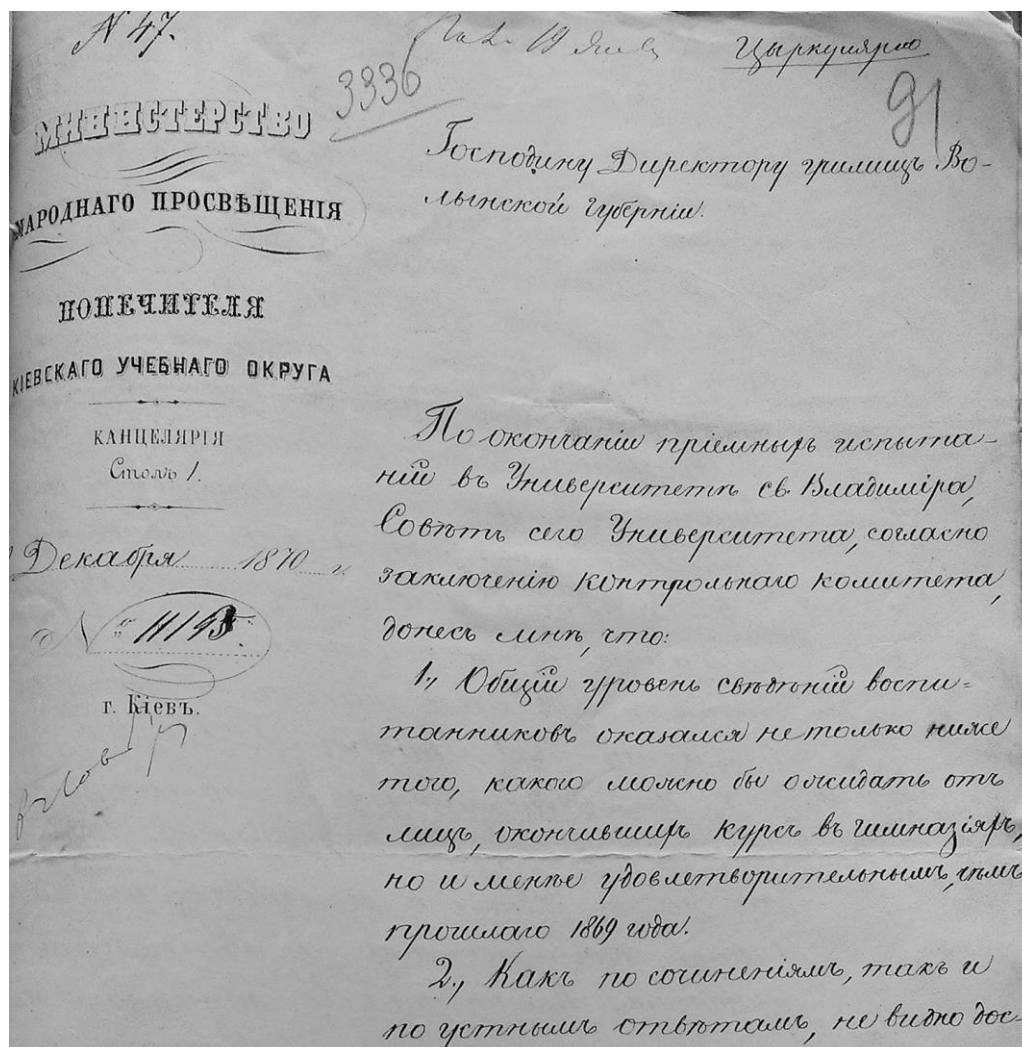 N 47.
19
Цыркулярно
3336
91
МИНИСТЕРСТВО
НАРОДНАГО ПРОСВѢЩЕНІЯ
ПОПЕЧИТЕЛЯ
КІЕВСКАГО УЧЕБНАГО ОКРУГА
КАНЦЕЛЯРІЯ
Столъ 1.
Декабря 1870 г.
N 11145.
г. Кіевъ.
Господину Директору училищъ Во-
лынской Губерніи.
По окончаніи пріемныхъ испыта-
ній въ Университетѣ св. Владиміра,
Совѣтъ сего Университета, согласно
заключенію контрольнаго комитета,
донесъ мнѣ, что:
1., Общій уровень свѣдѣній воспи-
танниковъ оказался не только ниже
того, какого можно бы ожидать отъ
лицъ, окончившихъ курсъ въ гимназіяхъ,
но и менѣе удовлетворительнымъ, чѣмъ
прошлаго 1869 года.
2., Какъ по сочиненіямъ, такъ и
по устнымъ отвѣтамъ, не видно дос-